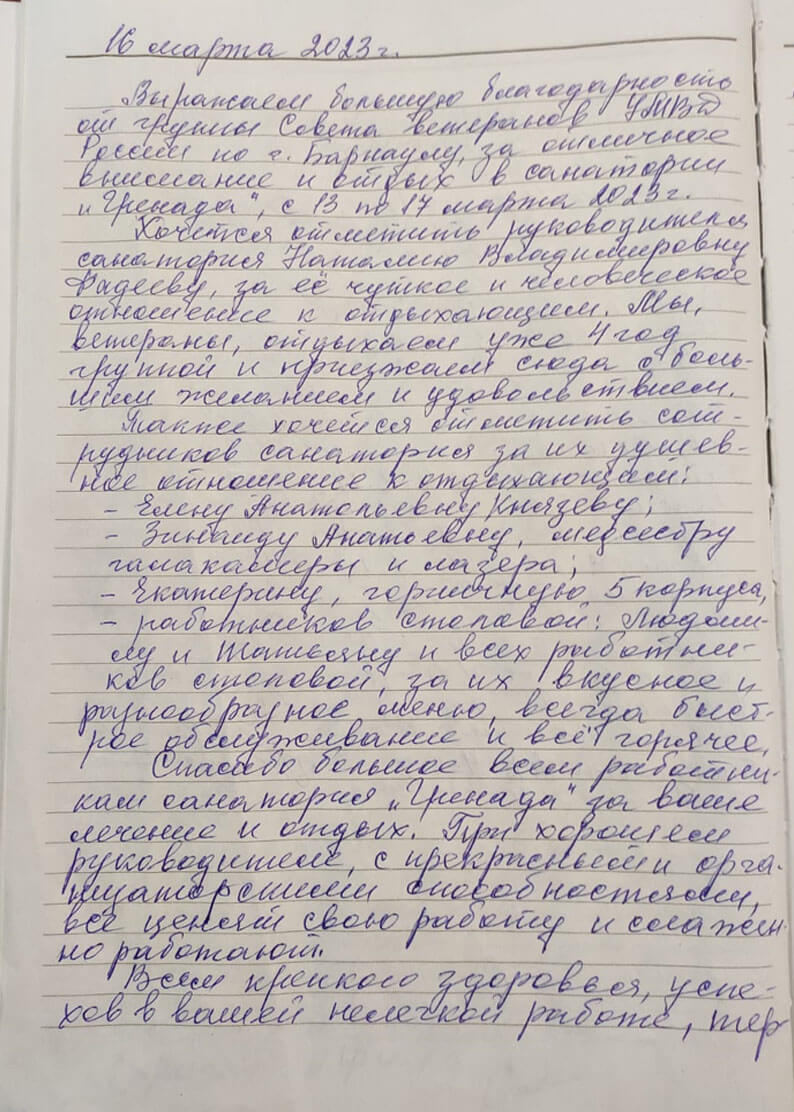 16 марта 2023г.
Выражаем большую благодарность
от группы Совета ветеранов УМВД
России по г. Барнаулу, за отличное
внимание и отдых в санатории
„Гренада", с 13 по 17 марта 2023г.
Хочется отметить руководителя
санатория Наталию Владимировну
Фадееву, за её чуткое и человеческое
отношение к отдыхающим. Мы,
ветераны, отдыхаем уже 4 год
группой и приезжаем сюда с боль-
шим желанием и удовольствием.
Также хочется отметить сот-
рудников санатория за их душев-
ное отношение к отдыхающим:
- Елену Анатольевну Князеву;
- Зинаиду Анатоевну, медсестру
галакамеры и лазера;
- Екатерину, горничную 5 корпуса,
- работников столовой: Людми-
лу и Татьяну и всех работни-
ков столовой, за их вкусное и
разнообразное меню, всегда быст-
рое обслуживание и всё горячее.
Спасибо большое всем работни-
кам санатория „Гренада" за ваше
лечение и отдых. При хорошем
руководителе, с прекрасными орга-
низаторскими способностями,
все ценят свою работу и слажен-
но работают.
Всем крепкого здоровья, успе-
хов в вашей нелегкой работе, тер